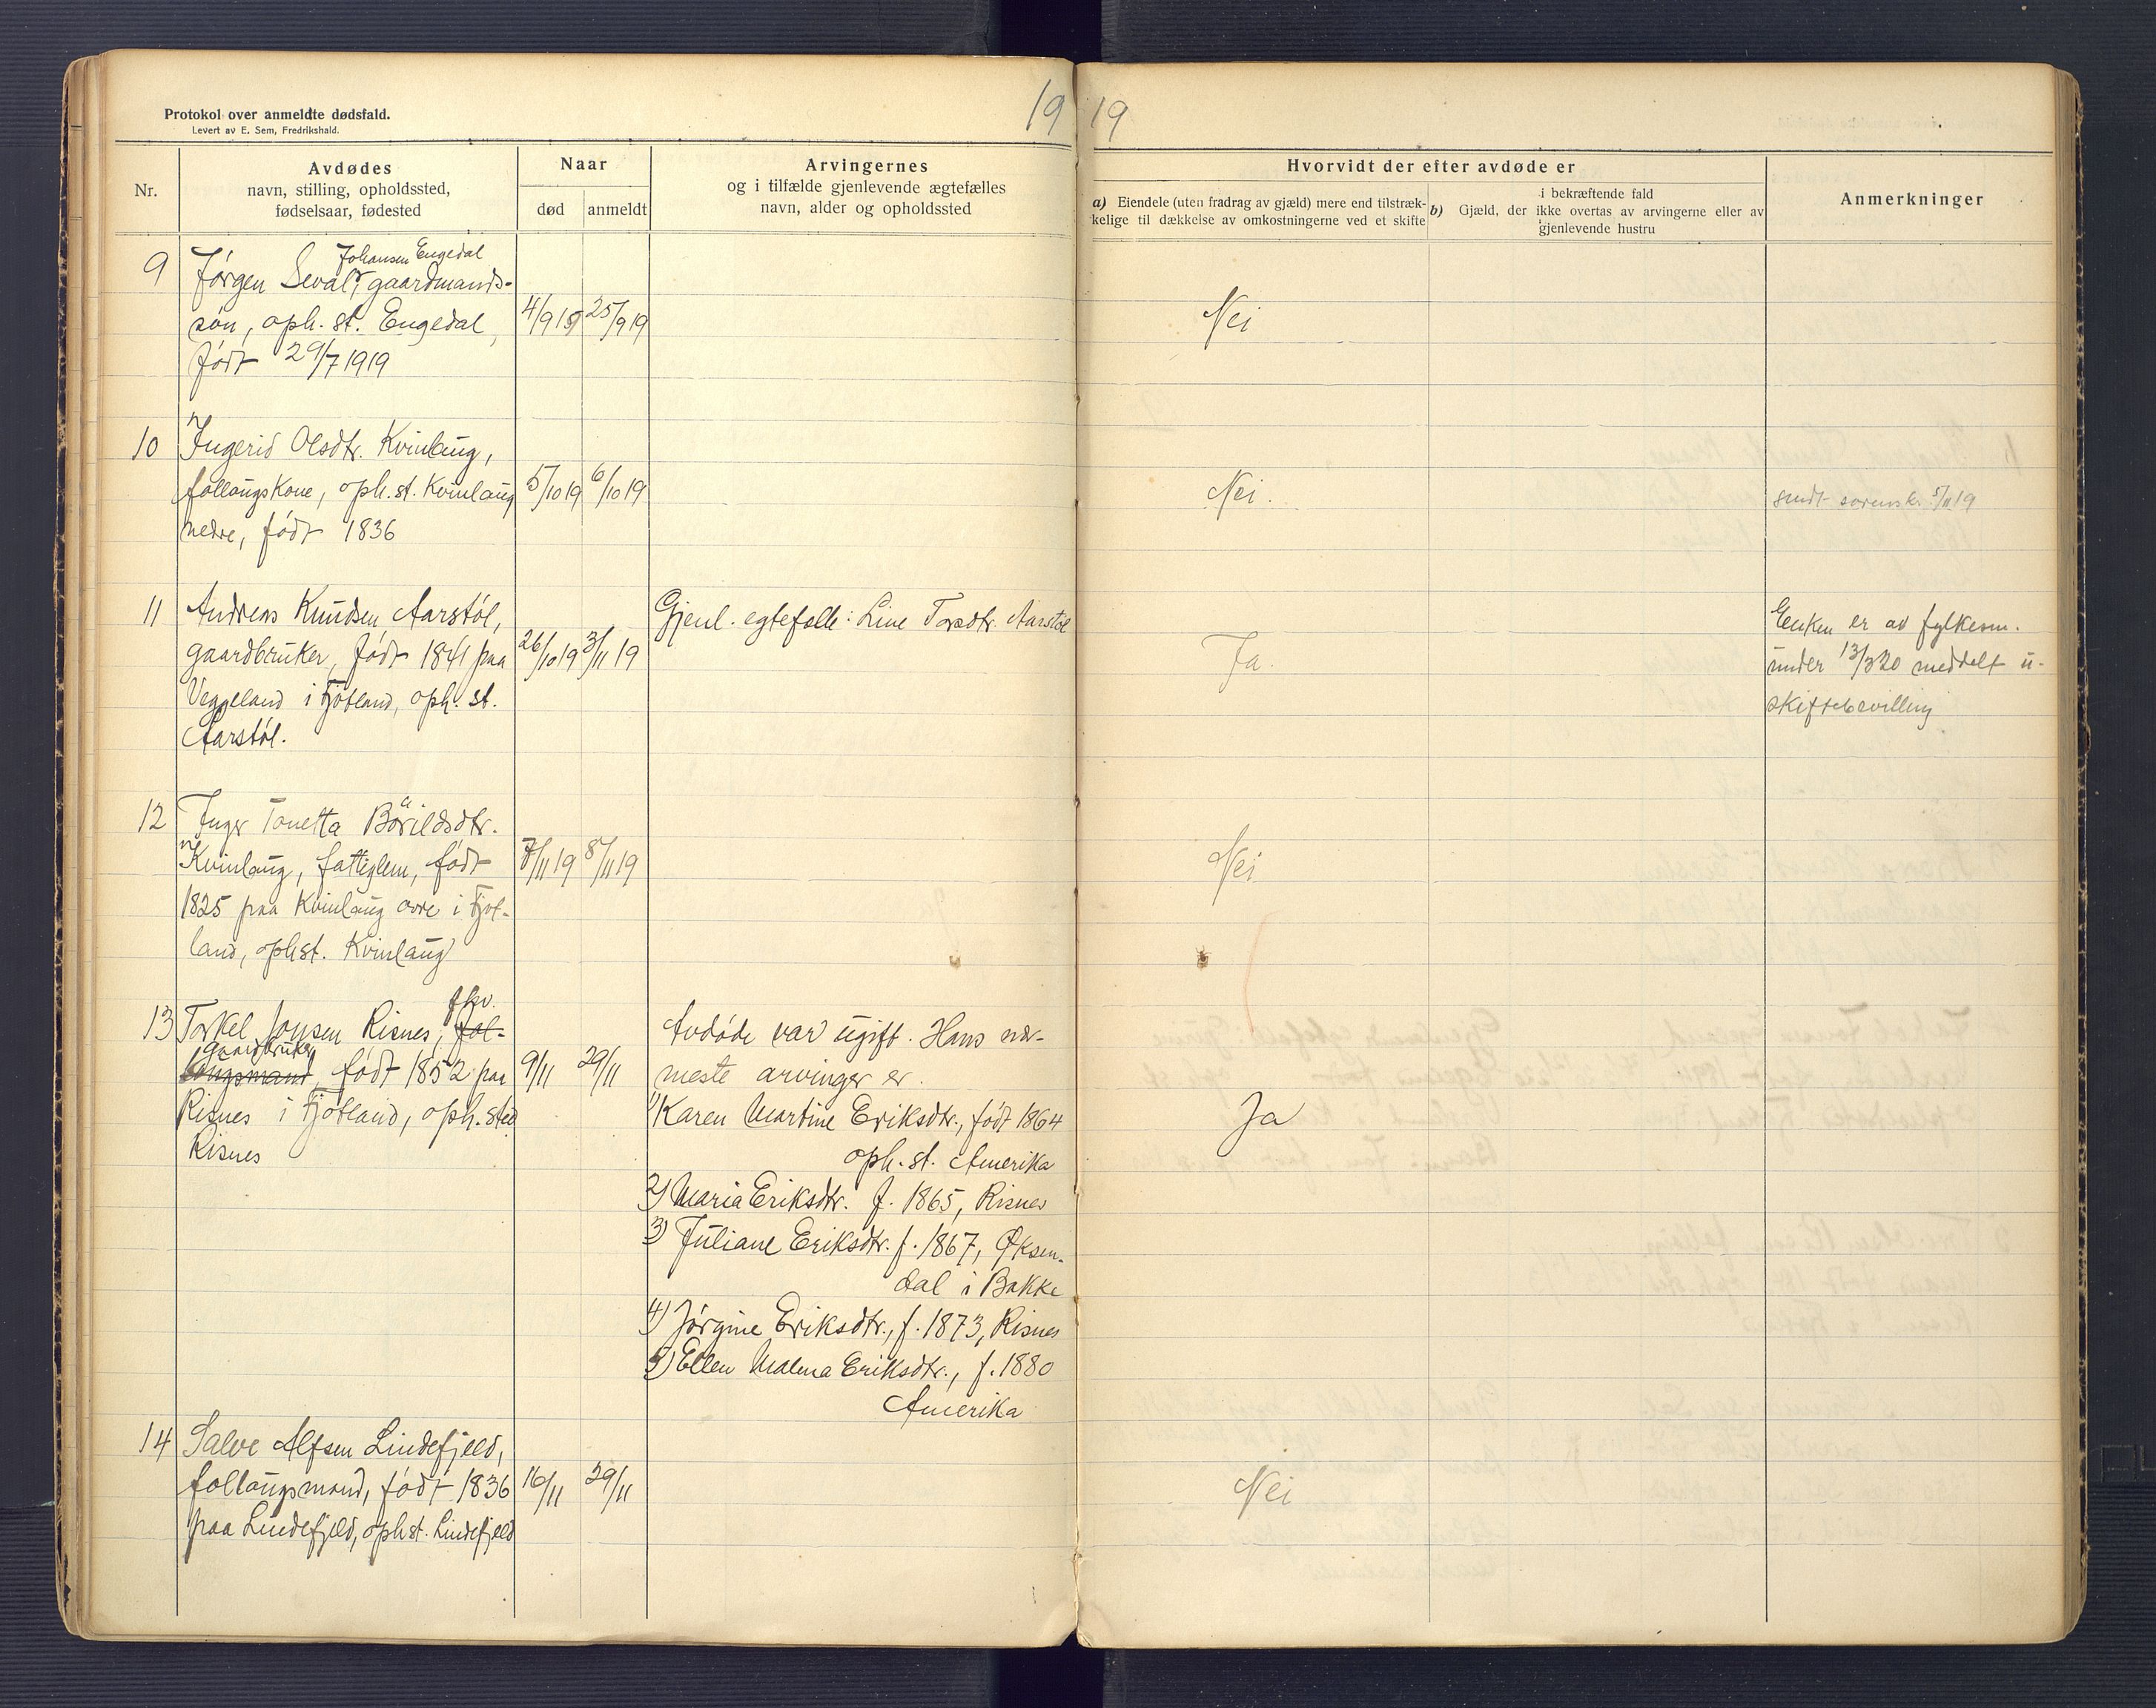 Protokol over anmeldte dødsfald.
Levert av E. Sem, Fredrikshald.
19
19
Nr.
Avdødes
navn, stilling, opholdssted,
fødselsaar, fødested
Naar
død
anmeldt
Arvingernes
og i tilfælde gjenlevende ægtefælles
navn, alder og opholdssted
Hvorvidt der efter avdøde er
a) Eiendele (uten fradrag av gjæld) mere end tilstræk-
kelige til dækkelse av omkostningerne ved et skifte
i bekræftende fald
b) Gjæld, der ikke overtas av arvingerne eller av
gjenlevende hustru
Anmerkninger
9
Johansen Engedal
Jørgen Sevald, gaardmands-
søn, oph. st. Engedal,
født 29/7 1919
4/9 19
25/9 19
Nei
10
Ingerid Olsdtr. Kvinlaug,
follaugskone, oph. st. Kvinlaug
nedre, født 1836
5/10 19
6/10 19
Nei.
sendt sorensk. 5/11 19
11
Andreas Knudsen Aarstøl,
gaardbruker, født 1841 paa
Veggeland i Fjotland, oph. st.
Aarstøl.
26/10 19
3/11 19
Gjenl. egtefelle: Line Torsdtr. Aarstøl
Ja.
Enken er av fylkesm.
under 13/3 20 meddelt u-
skiftebevilling
12
Inger Tonetta Bårildsdtr.
Kvinlaug, fattiglem, født
1825 paa Kvinlaug øvre i Fjot-
land, ophst. Kvinlaug
7/11 19
8/11 19
Nei
13
fhv.
Torkel Jonsen Risnes, fol-
gaardbruker
laugsmand, født 1852 paa
Risnes i Fjotland, oph. sted
Risnes
9/11
29/11
Avdøde var ugift. Hans nær-
meste arvinger er.
1) Karen Martine Eriksdtr., født 1864
oph. st. Amerika
2) Maria Eriksdtr. f. 1865, Risnes
3) Juliane Eriksdtr. f. 1867, Øksen-
dal i Bakke
4) Jørgine Eriksdtr., f. 1873, Risnes
5) Ellen Malena Eriksdtr., f. 1880
Amerika
Ja
14
Salve Alfsen Lindefjeld,
follaugsmand, født 1836
paa Lindefjeld, ophst. Lindefjeld
16/11
29/11
Nei